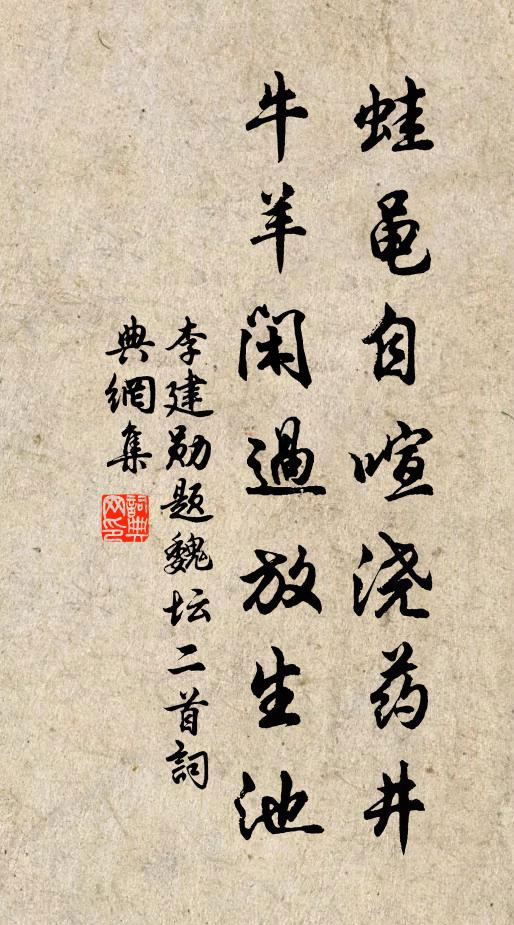 蛙黾自喧浇药井
牛羊闲过放生池
李建勋题魏坛二首詞
典網集
詞典
网印